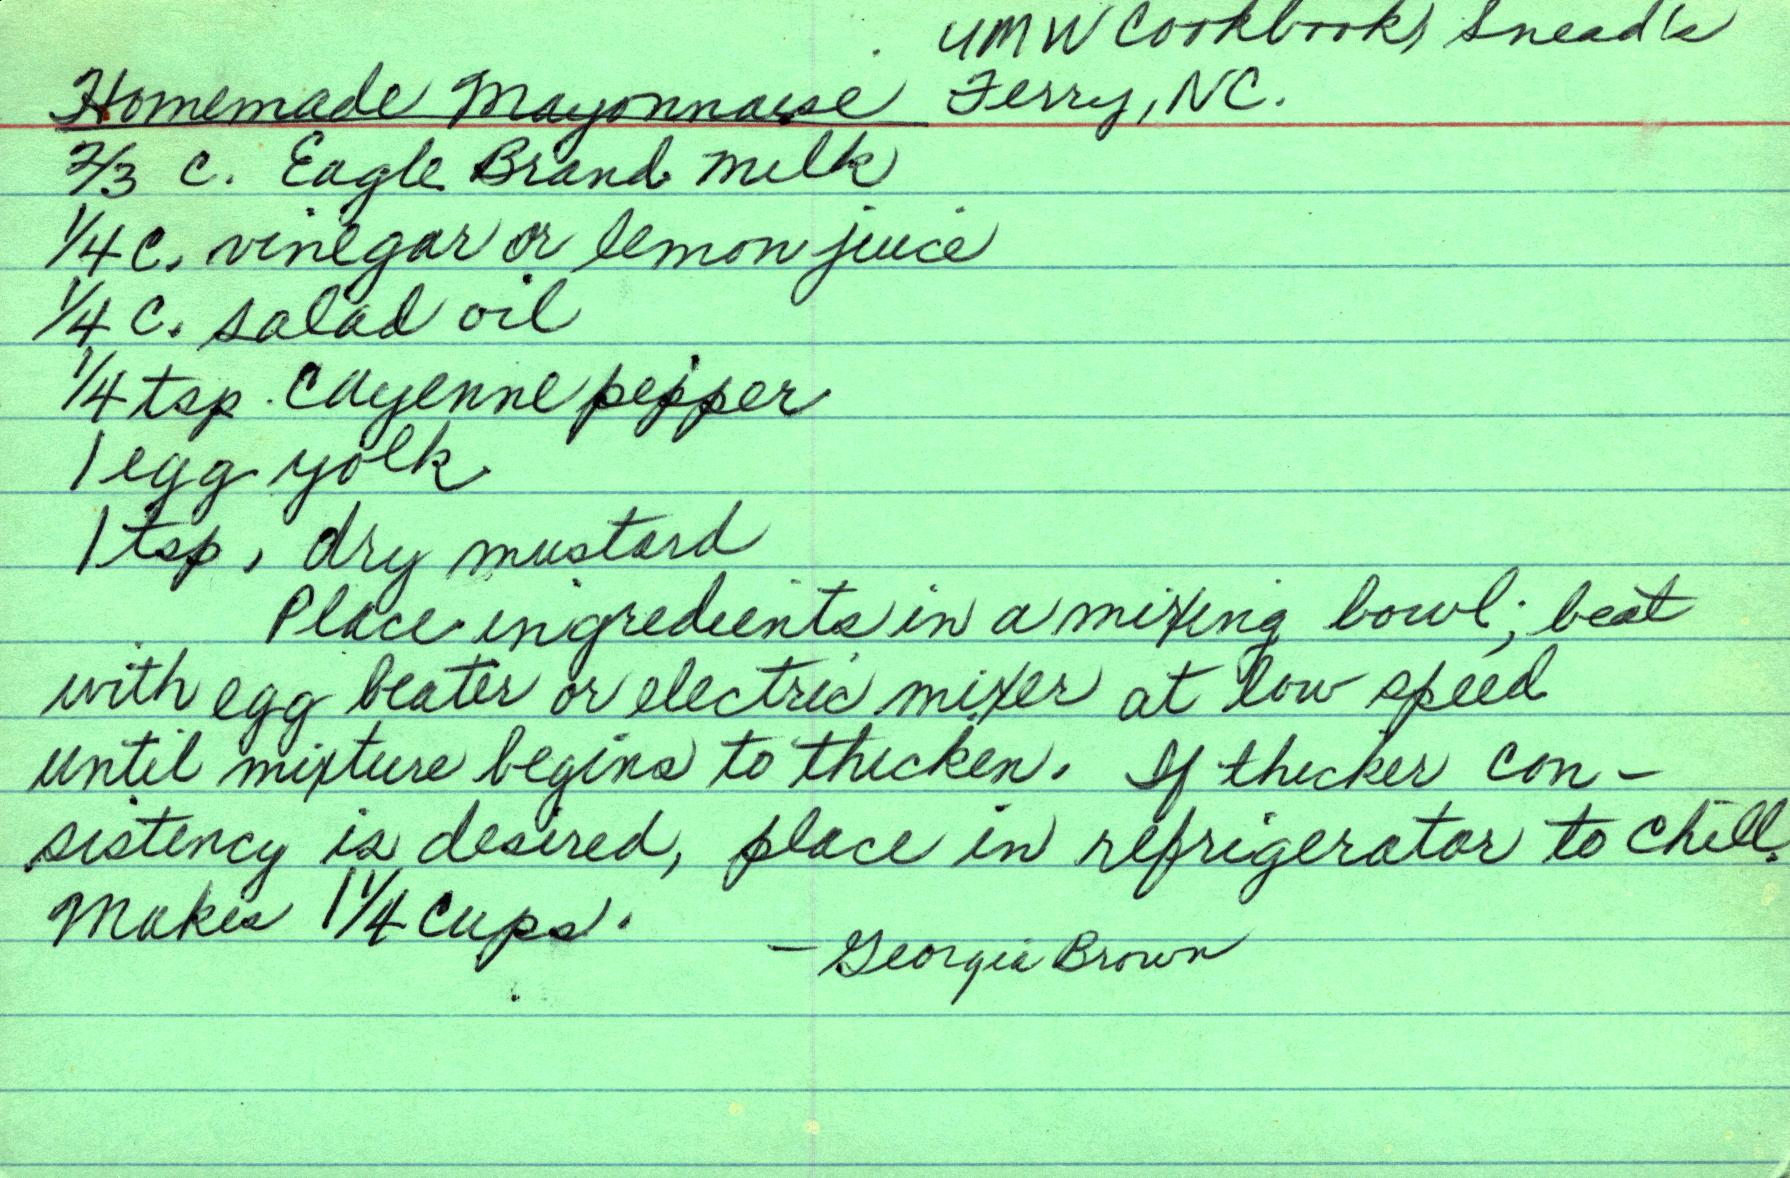 UMW Cookbook, Snead's
Homemade Mayonnaise Ferry, NC.
2/3 c. Eagle Brand milk
1/4 c. vinegar or lemon juice
1/4 c. salad oil
1/4 tsp. cayenne pepper
1 egg yolk
1 tsp. dry mustard
Place ingredients in a mixing bowl; beat
with egg beater or electric mixer at low speed
until mixture begins to thicken. If thicker con-
sistency is desired, place in refrigerator to chill.
Makes 1 1/4 cups.
- Georgia Brown